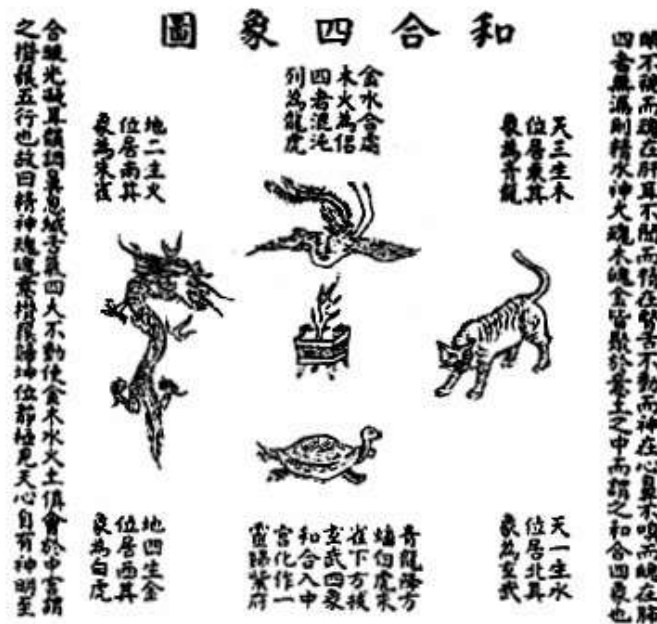 和合四象圖
眼不視而魂在肝耳不聞而精在腎舌不動而神在心鼻不嗅而魄在肺
四者無漏則精水神火魂木魄金皆聚於意土之中而謂之和合四象也
天三生木
位居東其
象為青龍
金水合處
木火為侶
四者混沌
列為龍虎
地二生火
位居南其
象為朱雀
天一生水
位居北其
象為玄武
青龍
虎朱
雀下方後
玄武四象
和合入中
宮化作一
靈歸紫府
地四生金
位居西其
象為白虎
合眼光凝耳韻調鼻息緘舌氣四大不動使金木水火土俱會於中宮謂
之攢簇五行也故曰精神魂魄意攢簇歸坤位靜極見天心自有神明至